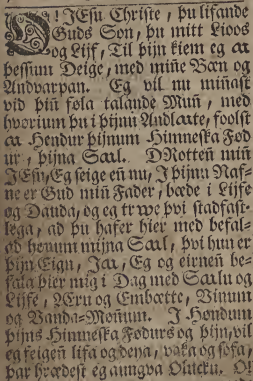 O! JEsu Christe, þu lifande
Guds Son, þu mitt Lioos
og Lijf, Til þijn kiem eg ax
þessum Deige, med miñe Bæn og
Andvarpan. Eg vil nu miñast
vid þiñ søla talande Muñ, med
hvørium þu i þijnu Andlaate, foolst
ax Hendur þijnum Himneska Fød
ur, þijna Sæl. DRotteñ miñ
JEsu, Eg seige eñ nu, I þijnu Naf-
ne er Gud miñ Fader, bæde i Lijfe
og Dauda, og eg trwe þvi stadfast-
lega, ad þu hafer hier med befal-
ad honum mijna Sæl, þvi hun er
þijn Eign, Jax, Eg og eirneñ be-
fala þier mig i Dag med Sælu og
Lijfe, Æru og Embætte, Vinum
og Vanda-Møñum. I Høndum
þijns Himneska Fødurs og þijn, vil
eg feigeñ lifa og deya, vaka og sofa,
þar hrædest eg aungva Olucku. O!